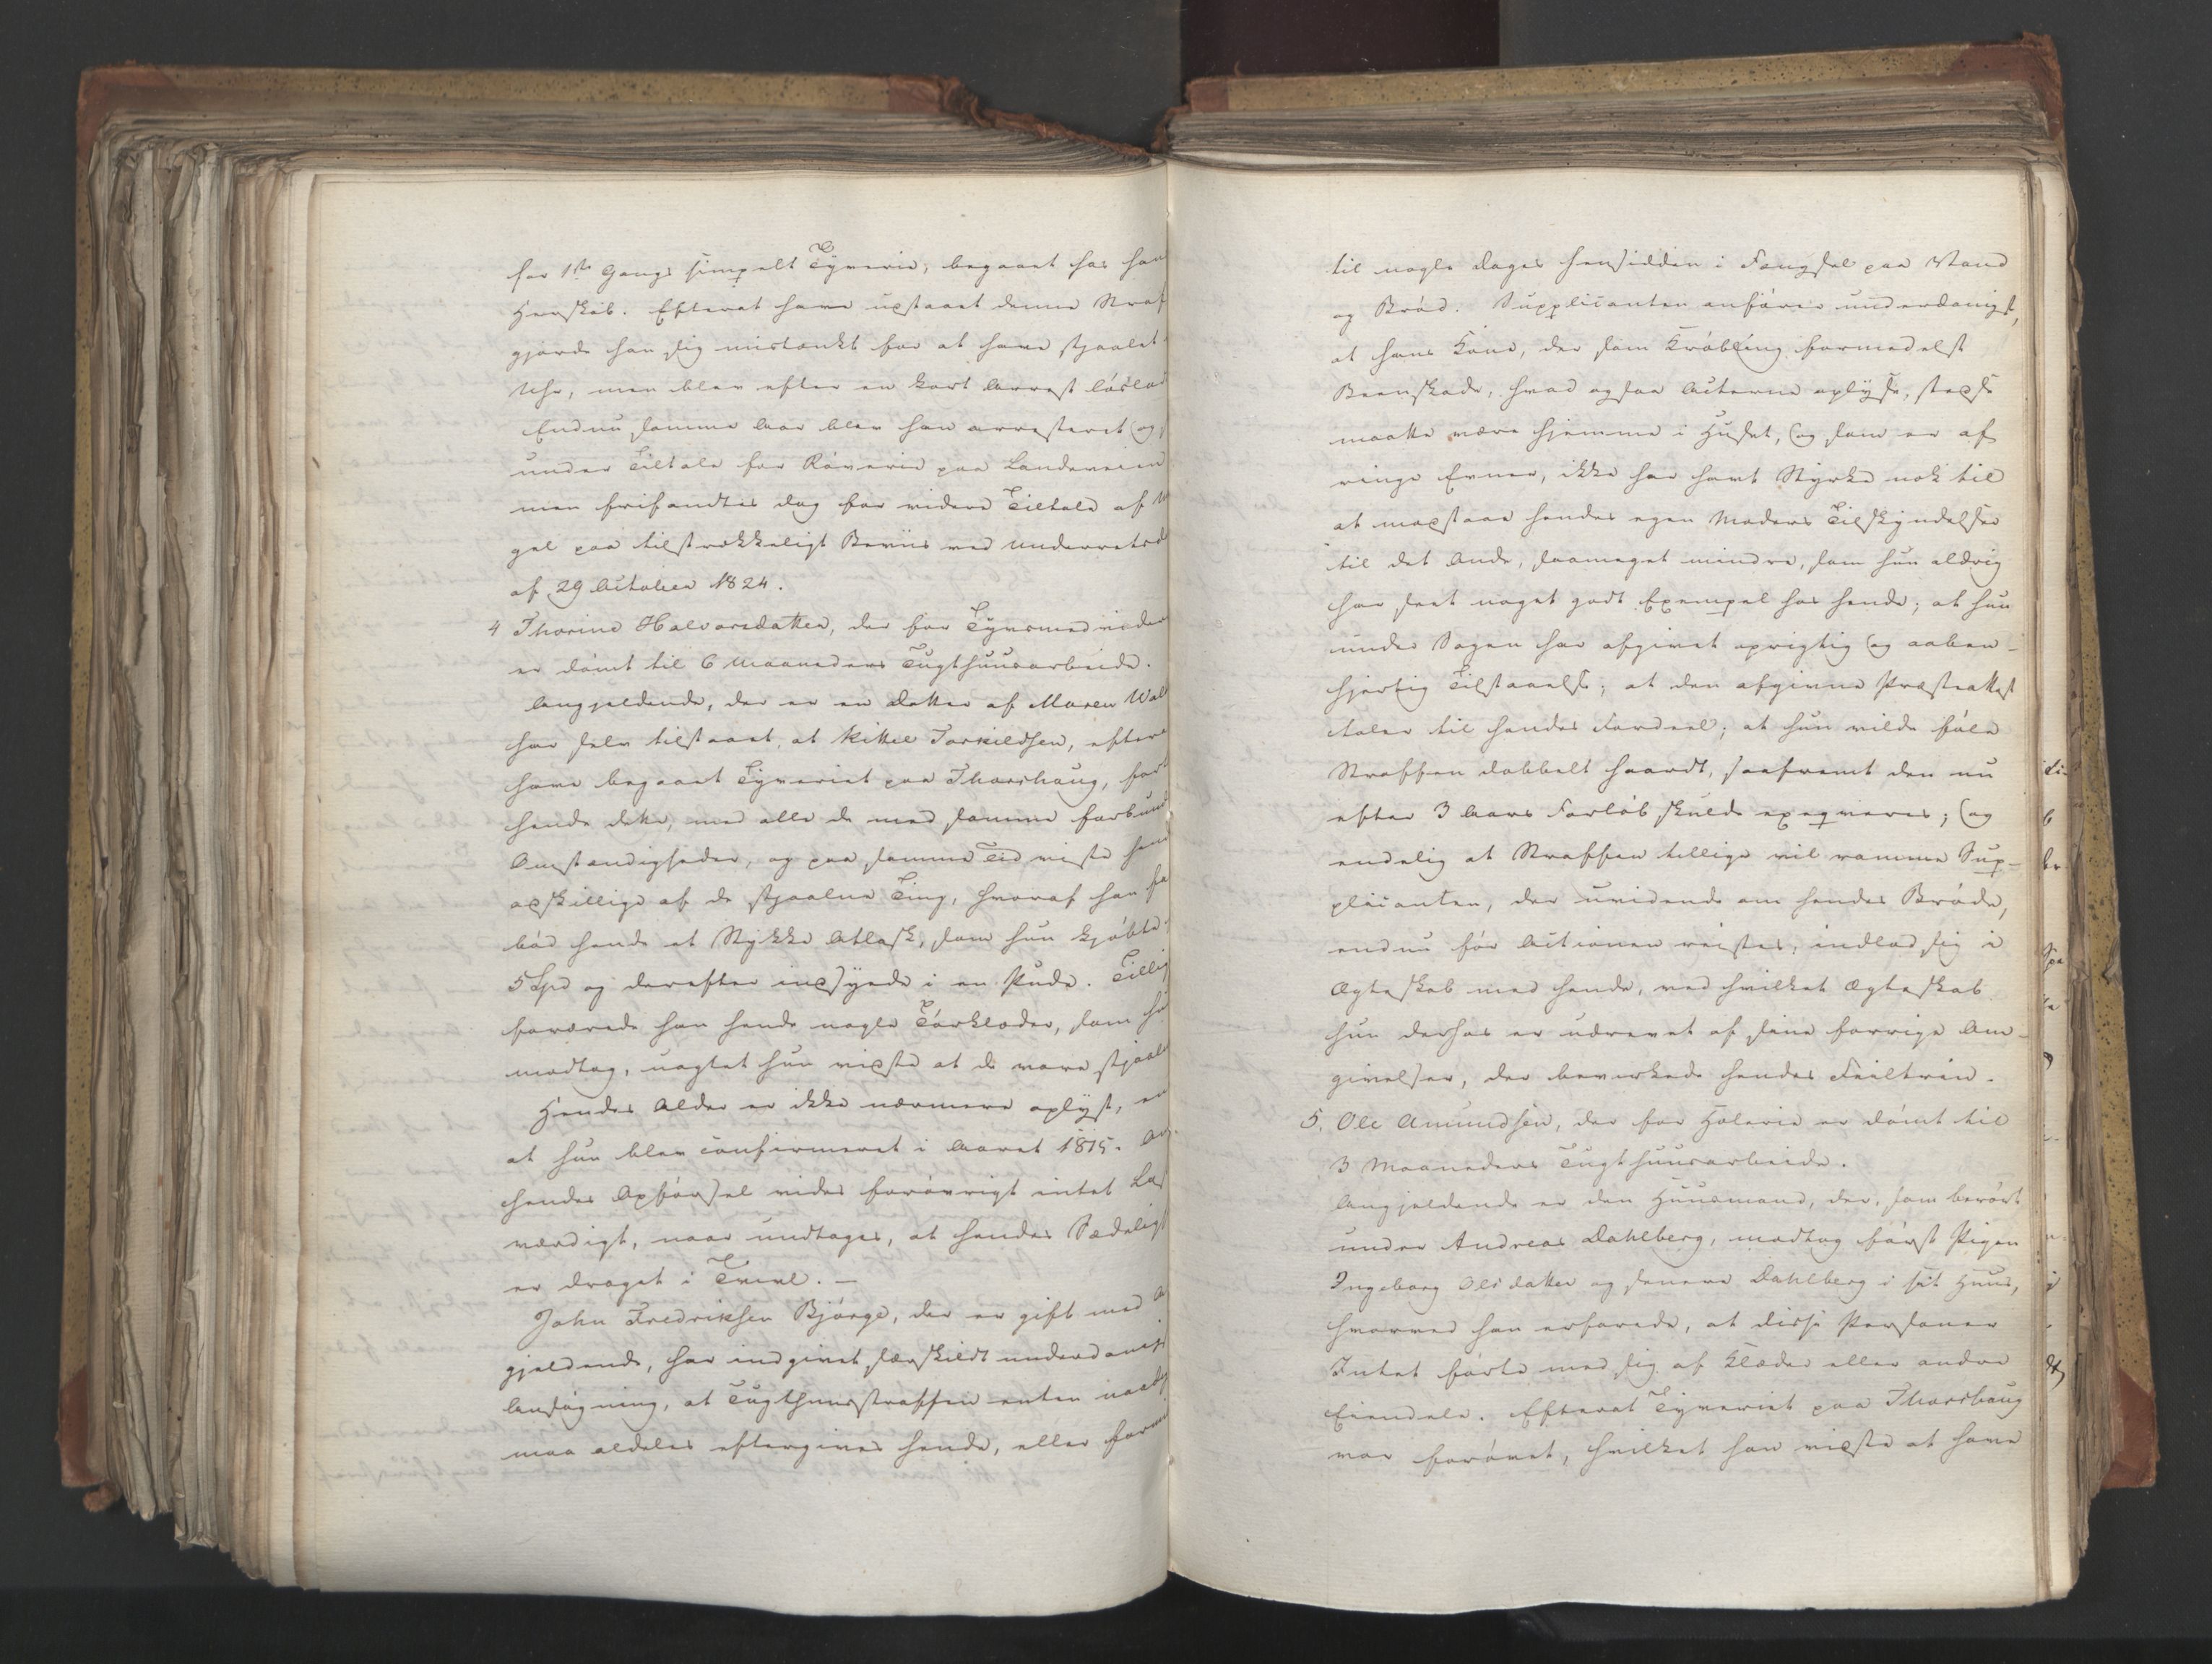 for 1ste Gangs simpelt Tyverie, begaaet hos hans
Herskab. Efterat have udstaaet denne Straf
gjorde han sig mistænkt for at have stjaalet
Uhr, men blev efter en kort Arrest løslad
Endnu samme Aar blev han arresteret og
under Tiltale for Røverie paa Landeveien
men frifandtes dog for videre Tiltale af M
gel paa tilstrækkeligt Beviis ved Underretsd
af 29 October 1824.
4 Thorine Halvorsdatter, der for Tyvsmedviden
er dømt til 6 Maaneders Tugthuusarbeide.
Angjeldende, der er en Datter af Maren Wal
har selv tilstaaet, at Kittel Torkildsen, efter
have begaaet Tyveriet paa Thorshaug, for
hende dette, med alle de med samme forbund
Omstændigheder, og paa samme Tid viste hen
adskillige af de stjaalne Ting, hvoraf han fa
bød hende et Stykke Atlask, som hun kjøbte
5 Spd og derefter indsyede i en Pude. Tillig
forærede han hende nogle Tørklæder, som hu
modtog, uagtet hun vidste at de vare stjaaln
Hendes Alder er ikke nærmere oplyst, en
at hun blev confirmeret i Aaret 1815. Om
hendes Opførsel vides forøvrigt intet Las
værdigt, naar undtages, at hendes Sædeligh
er draget i Tvivl. —
John Fredriksen Bjørge, der er gift med A
gjeldende, har indgivet særskildt underdanigs
Ansøgning, at Tugthuusstraffen enten naad
maa aldeles eftergives hende, eller form
til nogle Dages Hensidden i Fængsel paa Vand
og Brød. Supplicanten anfører underdanigst,
at hans Kone, der som Krøbling formedelst
Beenskade, hvad ogsaa Acterne oplyse, stedse
maatte være hjemme i Huset, og som er af
ringe Evner, ikke har havt Styrke nok til
at modstaae hendes egen Moders Tilskyndelser
til det Onde, saameget mindre, som hun aldrig
har seet noget godt Exempel hos hende; at hun
under Sagen har afgivet oprigtig og aaben-
hjertig Tilstaaelse; at den afgivne Præsteattest
taler til hendes Fordeel; at hun vilde føle
Straffen dobbelt haardt, saafremt den nu
efter 3 Aars Forløb skulde exeqveres; og
endelig at Straffen tillige vil ramme Sup-
plicanten, der uvidende om hendes Brøde,
endnu før Actionen reistes, indlod sig i
Ægteskab med hende, ved hvilket Ægteskab
hun derhos er udrevet af sine forrige Om-
givelser, der bevirkede hendes Feiltrin.
5. Ole Amundsen, der for Hælerie er dømt til
3 Maaneders Tugthuusarbeide.
Angjeldende er den Huusmand, der, som berørt
under Andreas Dahlberg, modtog først Pigen
Ingeborg Olsdatter og senere Dahlberg i sit Huus,
hvorved han erfarede, at disse Personer
Intet førte med sig af Klæder eller andre
Eiendele. Efterat Tyveriet paa Thorshaug
var forøvet, hvilket han vidste at have